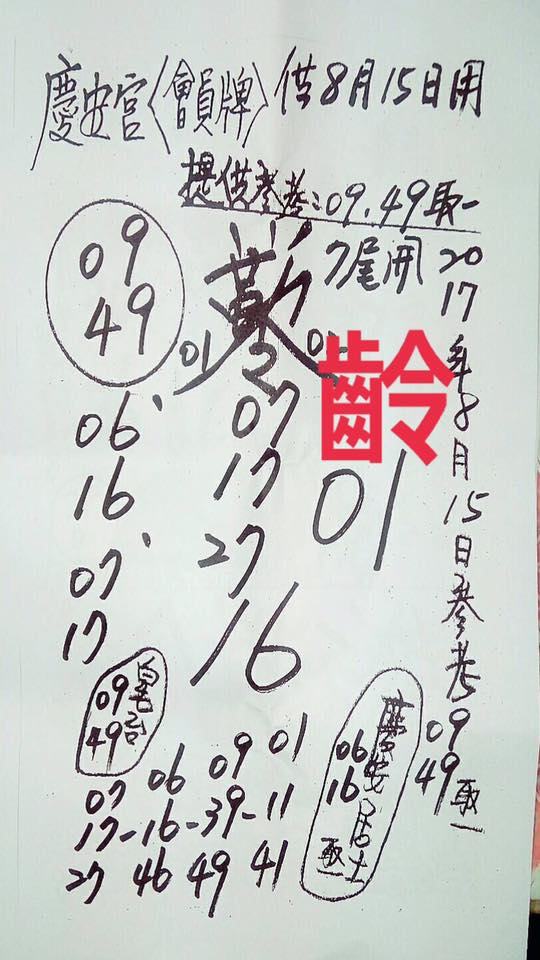 慶安宮〈會員牌〉供8月15日用
提供參考:09.49取一
7尾開
2017年8月15日參考
09
49
取一
09
49
01
2
齡
06
16
07
17
07
17
27
16
01
09
49
慶安居士
06
16
取一
07 06 09 01
17-16-39-11
27 46 49 41